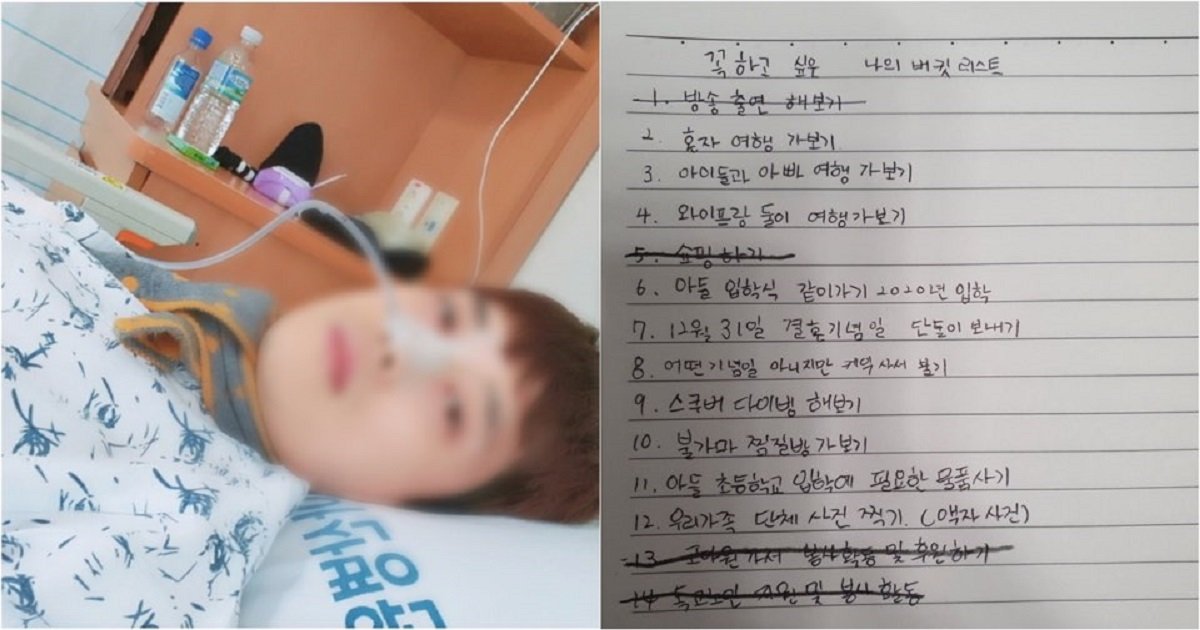 꼭 하고 싶은 나의 버킷 리스트
1. 방송 출연 해보기
2. 혼자 여행 가보기
3. 아이들과 아빠 여행 가보기
4. 와이프랑 둘이 여행가보기
5. 쇼핑하기
6. 아들 입학식 같이가기 2020년 입학
7. 12월 31일 결혼기념일 단둘이 보내기
8. 어떤기념일 아니지만 케익 사서 불기
9. 스쿠버 다이빙 해보기
10. 불가마 찜질방 가보기
11. 아들 초등학교 입학에 필요한 용품사기
12. 우리가족 단체 사진 찍기. (액자 사진)
13 고아원가서 봉사활동 및 후원하기
14 독거노인 지원 및 봉사 활동